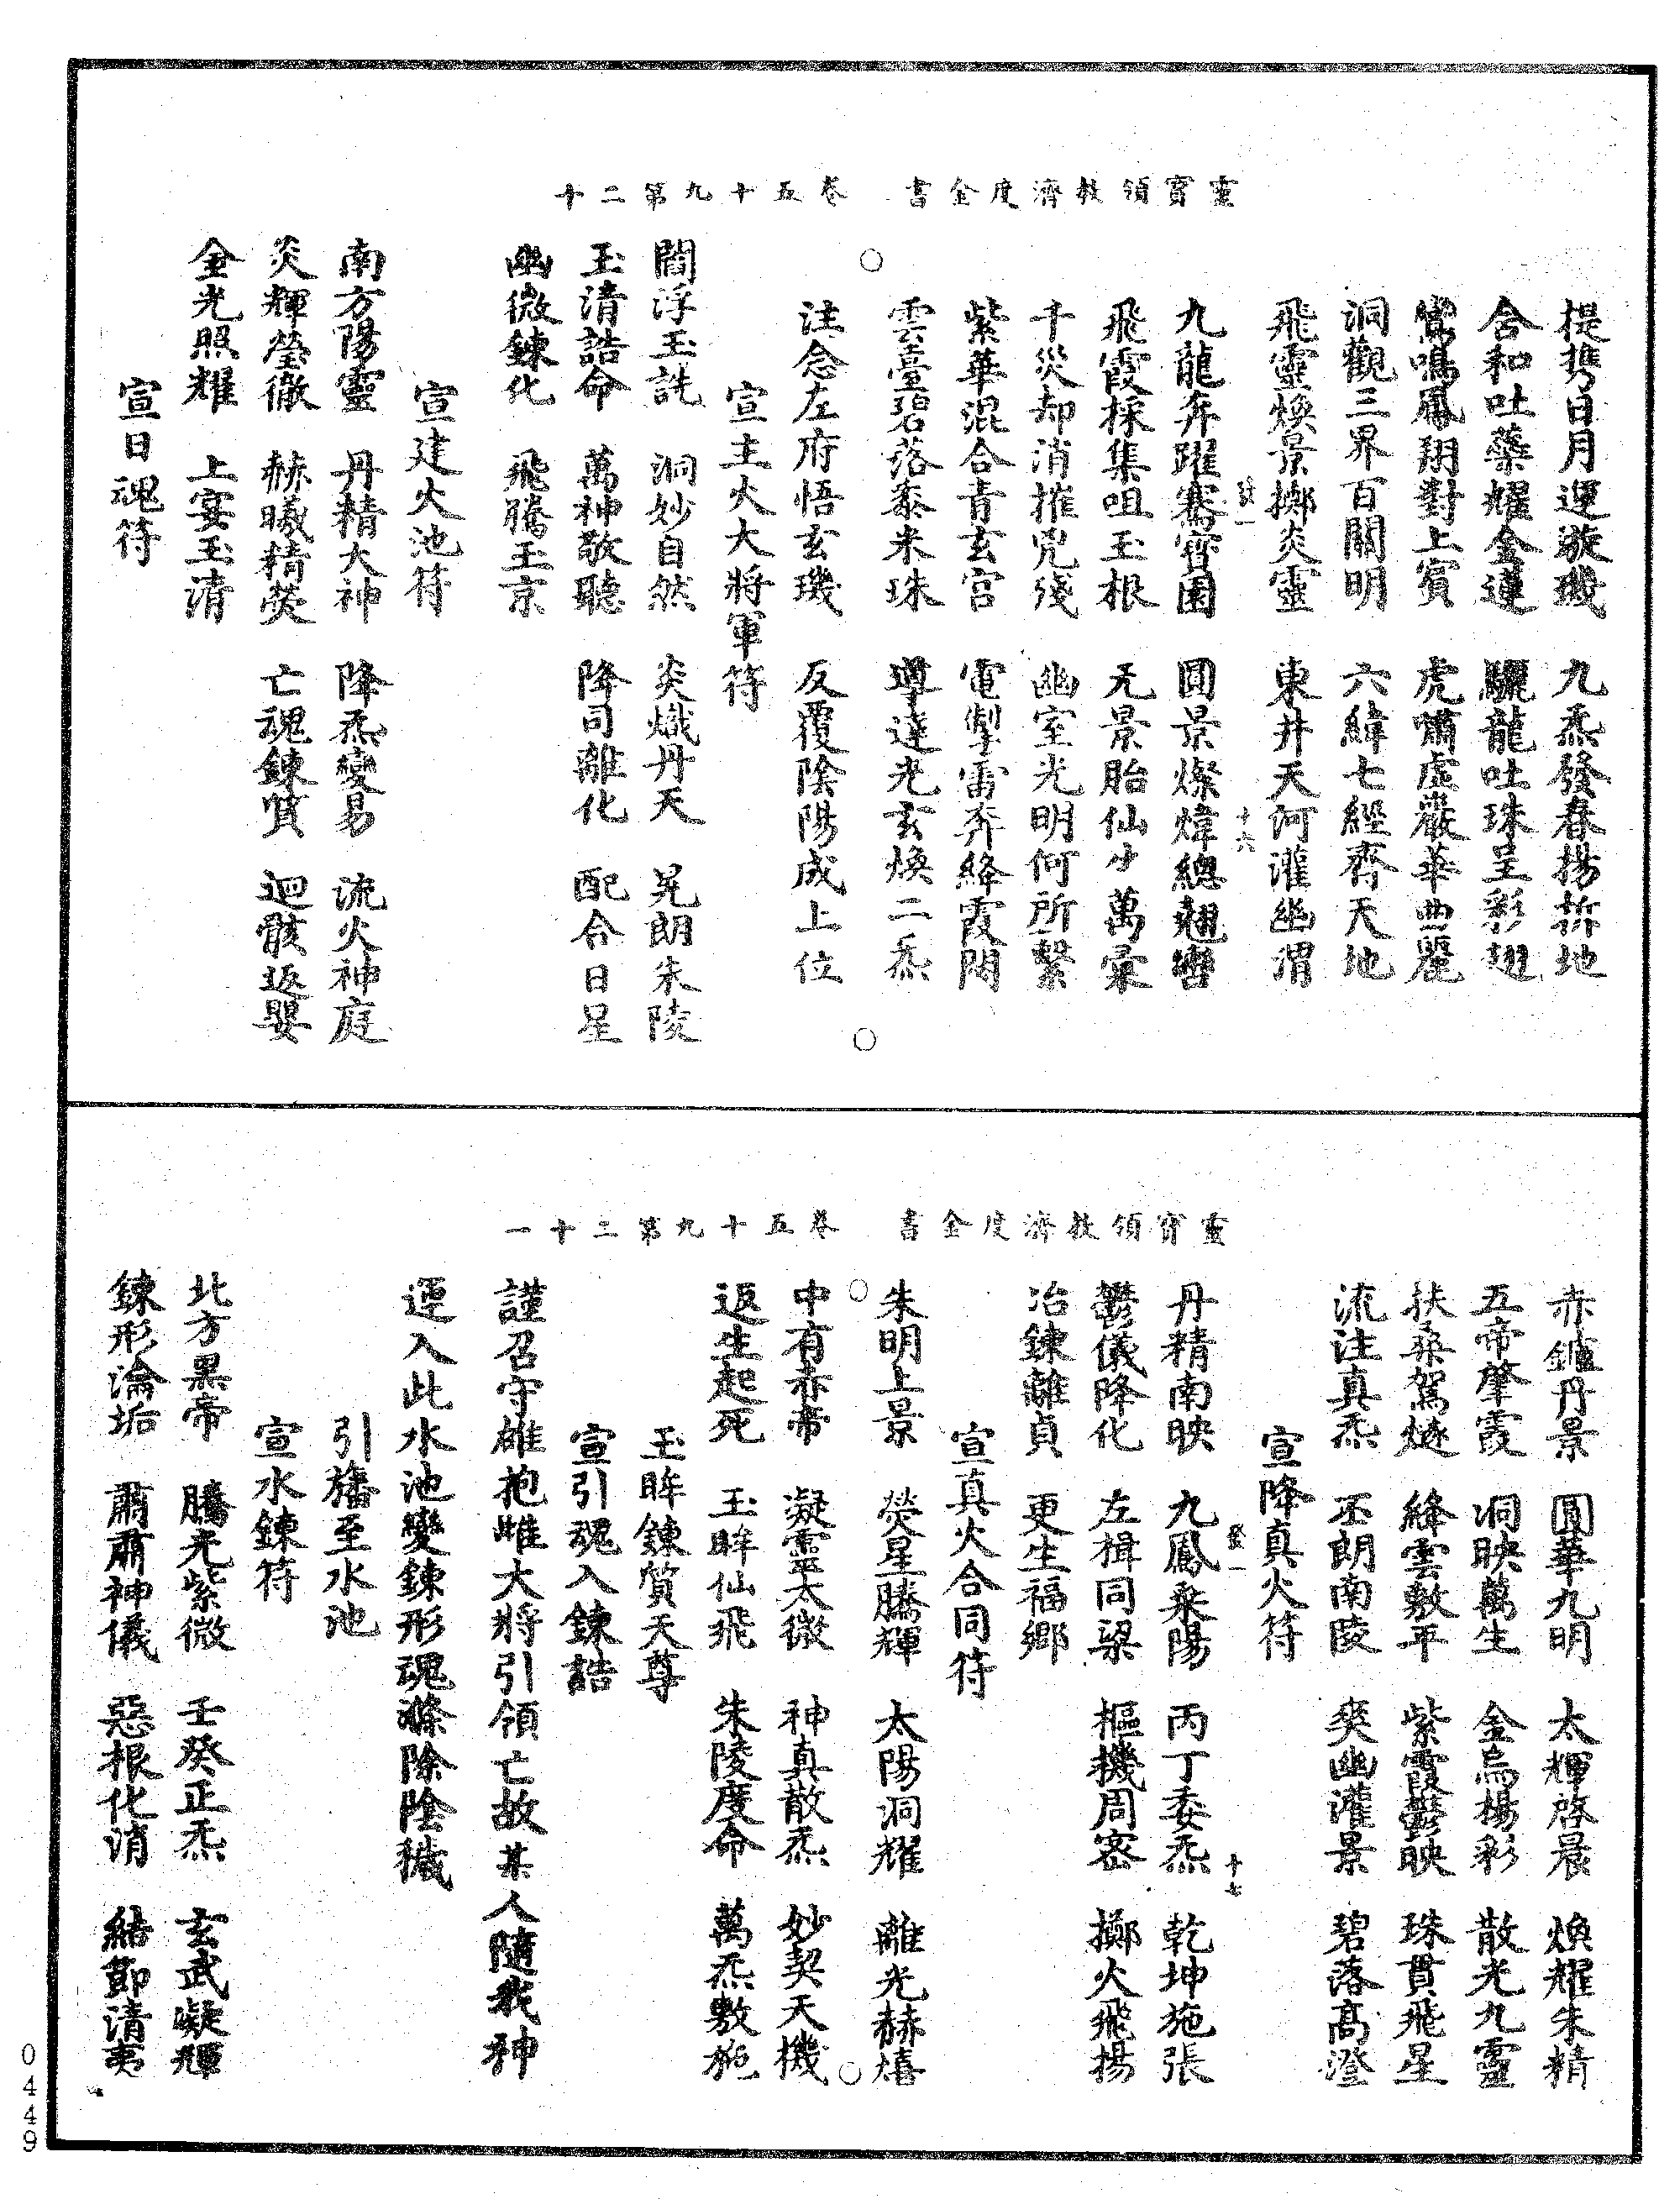 靈寶領教濟度金書　卷五十九第二十
提擕日月運璇璣　九炁發春揚拆地
含和吐藥耀金蓮　驪龍吐珠呈彩翅
鸞鳴鳳翔對上賓　虎嘯虛巖華曲麗
洞觀三界百關明　六緯七經齊天地
飛靈煥景擲炎靈　東井天河灌幽渭
十六
九龍奔躍騫寶園　圓景燦煒總翹轡
飛霞採集咀玉根　无景胎仙生萬彙
千災却消摧兇殘　幽室光明何所繫
紫華混合青玄宮　電掣雷奔絳霞閉
雲臺碧落黍米珠　導達光玄煥二炁
注念左府悟玄璣　反覆陰陽成上位
宣主火大將軍符
閻浮玉詵　洞妙自然　炎熾丹天　晃朗朱陵
玉清誥命　萬神敬聽　降司離化　配合日星
幽微鍊化　飛騰玉京
宣建火池符
南方陽靈　丹精大神　降炁變易　流火神庭
炎輝瑩徹　赫曦精熒　亡魂鍊質　迴骸返嬰
金光照耀　上宴玉清
宣日魂符
靈寶領教濟度金書　卷五十九第二十一
赤鑪丹景　圓華九明　太輝啓晨　煥耀朱精
五帝肇霞　洞映萬生　金烏楊彩　散光九靈
扶桑駕燧　絳雲敷平　紫霞鬱映　珠貫飛星
流注真炁　丕朗南陵　奭幽灌景　碧落高澄
宣降真火符
十七
丹精南映　九鳳乘陽　丙丁委炁　乾坤施張
鬱儀降化　左楫同梁　樞機周密　擲火飛揚
冶鍊離貞　更生福鄉
宣真火合同符
朱明上景　熒星騰輝　太陽洞耀　離光赫熺
中有赤帝　凝靈太微　神真散炁　妙契天機
返生起死　玉眸仙飛　朱陵度命　萬炁敷施
玉眸鍊質天尊
宣引魂入鍊誥
謹召守雄抱雌大將引領亡故某人隨我神
運入此水池變鍊形魂滌除陰穢
引旛至水池
宣水鍊符
北方黑帝　騰光紫微　壬癸正炁　玄武凝輝
鍊形淪垢　肅肅神儀　惡根化消　結節清夷
0449